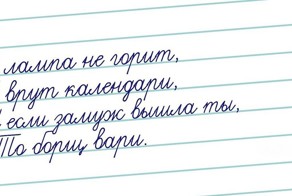 лампа не горит,
врут календари,
если замуж вышла ты,
То борщ вари.